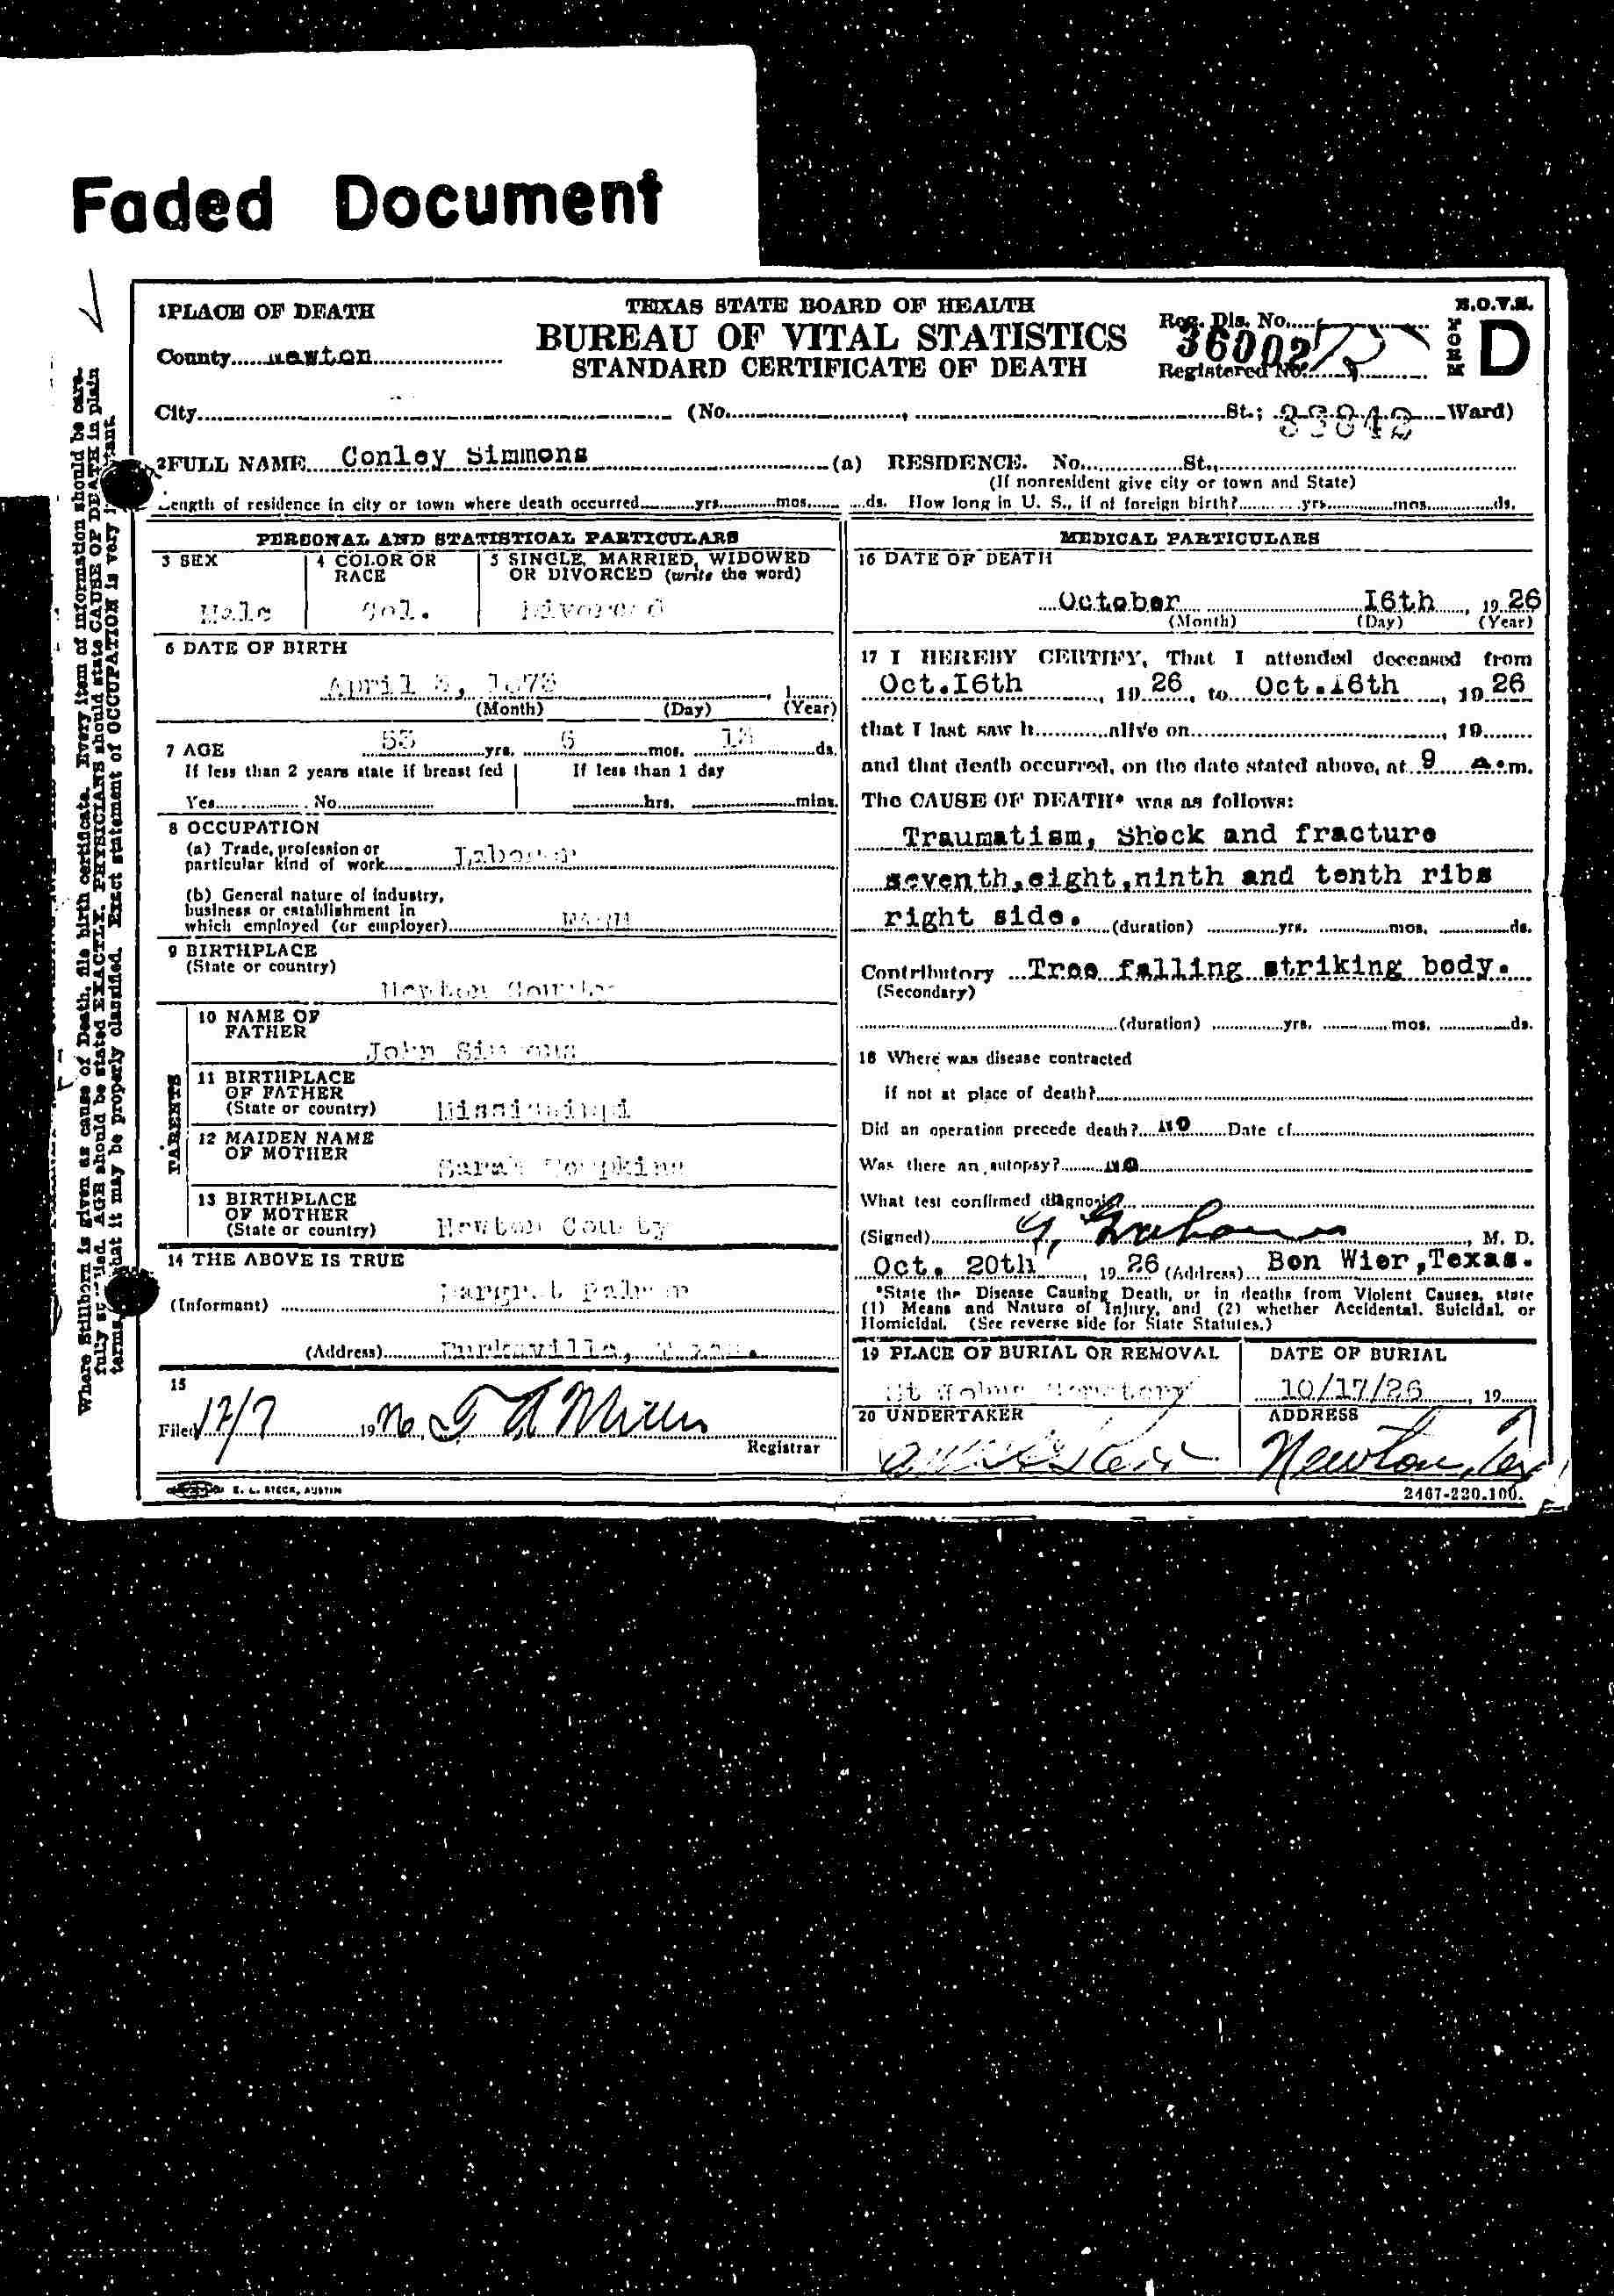 Faded Document
1 PLACE OF DEATH
TEXAS STATE BOARD OF HEALTH
B.O.V.S.
BUREAU OF VITAL STATISTICS
STANDARD CERTIFICATE OF DEATH
Reg. Dis. No.
36002
Registered No.
FORM D
County Newton
City (No. , St.; Ward)
2 FULL NAME Conley Simmons (a) RESIDENCE. No. St.,
(If nonresident give city or town and State)
Length of residence in city or town where death occurred yrs. mos. ds. How long in U. S., if of foreign birth? yrs. mos. ds.
PERSONAL AND STATISTICAL PARTICULARS
3 SEX
Male
4 COLOR OR RACE
Col.
5 SINGLE, MARRIED, WIDOWED
OR DIVORCED (write the word)
Divorced
6 DATE OF BIRTH
April
(Month) (Day) (Year)
7 AGE 53 yrs. 6 mos. ds.
If less than 2 years state if breast fed
Yes No
If less than 1 day
hrs. mins.
8 OCCUPATION
(a) Trade, profession or
particular kind of work Laborer
(b) General nature of industry,
business or establishment in
which employed (or employer)
9 BIRTHPLACE
(State or country)
Newton County
PARENTS
10 NAME OF
FATHER
John Simmons
11 BIRTHPLACE
OF FATHER
(State or country) Mississippi
12 MAIDEN NAME
OF MOTHER
Sarah
13 BIRTHPLACE
OF MOTHER
(State or country) Newton County
14 THE ABOVE IS TRUE
(Informant)
(Address) Burkeville, Texas.
15
Filed 12/7 1926
Registrar
E. L. STECK, AUSTIN
MEDICAL PARTICULARS
16 DATE OF DEATH
October 16th , 19 26
(Month) (Day) (Year)
17 I HEREBY CERTIFY, That I attended deceased from
Oct.16th , 19 26, to Oct.16th , 19 26
that I last saw h alive on , 19
and that death occurred, on the date stated above, at 9 A.m.
The CAUSE OF DEATH* was as follows:
Traumatism, Shock and fracture
seventh,eight,ninth and tenth ribs
right side. (duration) yrs. mos. ds.
Contributory Tree falling striking body.
(Secondary)
(duration) yrs. mos. ds.
18 Where was disease contracted
if not at place of death?
Did an operation precede death? no Date of
Was there an autopsy? no
What test confirmed diagnosis?
(Signed) , M. D.
Oct. 20th , 19 26 (Address) Bon Wier,Texas.
*State the Disease Causing Death, or in deaths from Violent Causes, state
(1) Means and Nature of Injury, and (2) whether Accidental, Suicidal, or
Homicidal. (See reverse side for State Statutes.)
19 PLACE OF BURIAL OR REMOVAL
Cemetery
DATE OF BURIAL
10/17/26 , 19
20 UNDERTAKER
ADDRESS
Newton, Tex
2467-220.100.